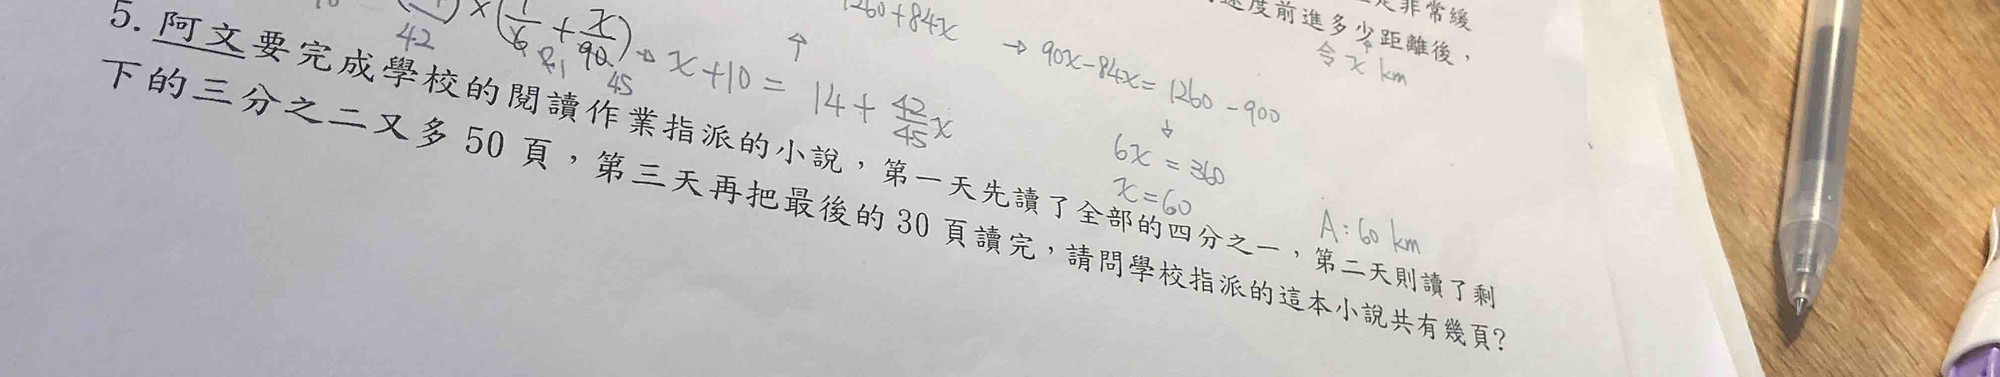 是非常緩
速度前進多少距離後，
令 x km
×(1/6 + x/90)
42
45
1260+84x
→ 90x-84x = 1260-900
→ x+10 = 14 + 42/45 x
6x = 360
x = 60
A: 60 km
5. 阿文要完成學校的閱讀作業指派的小說，第一天先讀了全部的四分之一，第二天則讀了剩
下的三分之二又多 50 頁，第三天再把最後的 30 頁讀完，請問學校指派的這本小說共有幾頁?